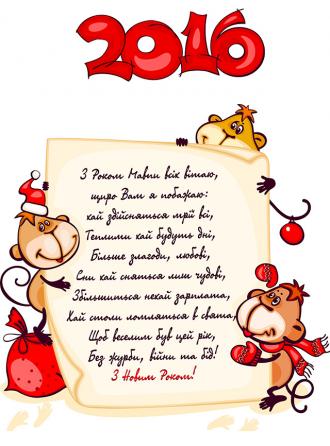 2016
З Роком Мавпи всіх вітаю,
щиро Вам я побажаю:
хай здійсняться мрії всі,
Теплими хай будуть дні,
Більше злагоди, любові,
Сни хай сняться лиш чудові,
Збільшиться нехай зарплата,
Хай столи ломляться в свята,
Щоб веселим був цей рік,
Без журби, війни та бід!
З Новим Роком!